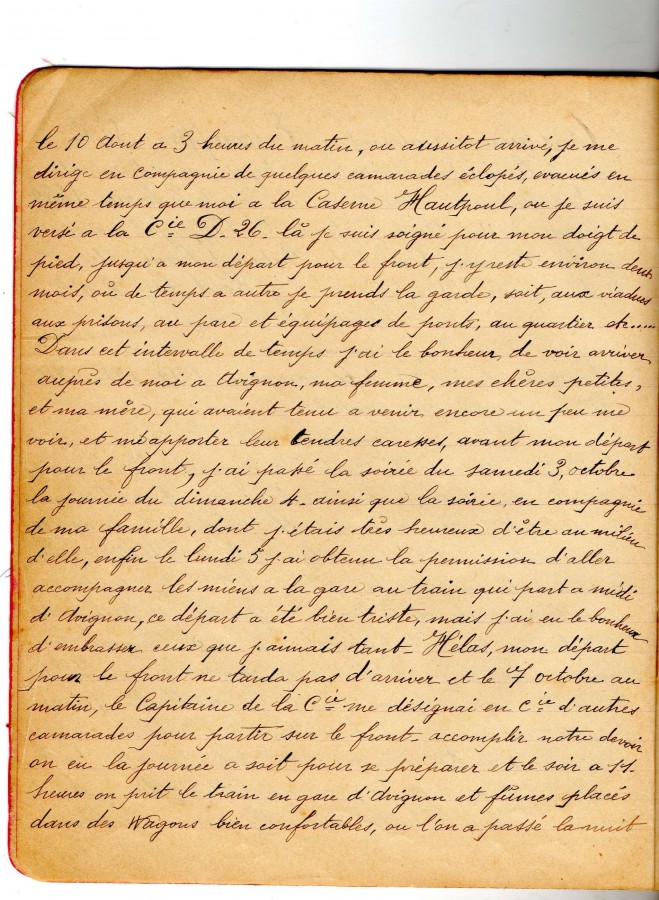 le 10 Aout a 3 heures du matin, ou aussitot arrivé, je me
dirige en compagnie de quelques camarades éclopés, evacués en
même temps que moi a la Caserne Hautpoul, ou je suis
versé a la Cie D-26- là je suis soigné pour mon doigt de
pied, jusqu'a mon départ pour le front, j'y reste environ deux
mois, où de temps a autre je prends la garde, soit, aux viaducs
aux prisons, au parc et équipages de ponts, au quartier etc.....
Dans cet intervalle de temps j'ai le bonheur, de voir arriver
auprès de moi a Avignon, ma femme, mes chères petites,
et ma mère, qui avaient tenu a venir encore un peu me
voir, et m'apporter leur tendres caresses, avant mon départ
pour le front, j'ai passé la soirée du samedi 3, octobre
la journée du dimanche 4- ainsi que la soirée, en compagnie
de ma famille, dont j'étais très heureux d'être au milieu
d'elle, enfin le lundi 5 j'ai obtenu la permission d'aller
accompagner les miens a la gare au train qui part a midi
d'Avignon, ce départ a été bien triste, mais j'ai eu le bonheur
d'embrasser ceux que j'aimais tant- Hélas, mon départ
pour le front ne tarda pas d'arriver et le 7 octobre au
matin, le Capitaine de la Cie me désignai en Cie d'autres
camarades pour partir sur le front- accomplir notre devoir
on eu la journée a soit pour se préparer et le soir a 11-
heures on prit le train en gare d'Avignon et fûmes placés
dans des Wagons bien confortables, ou l'on a passé la nuit